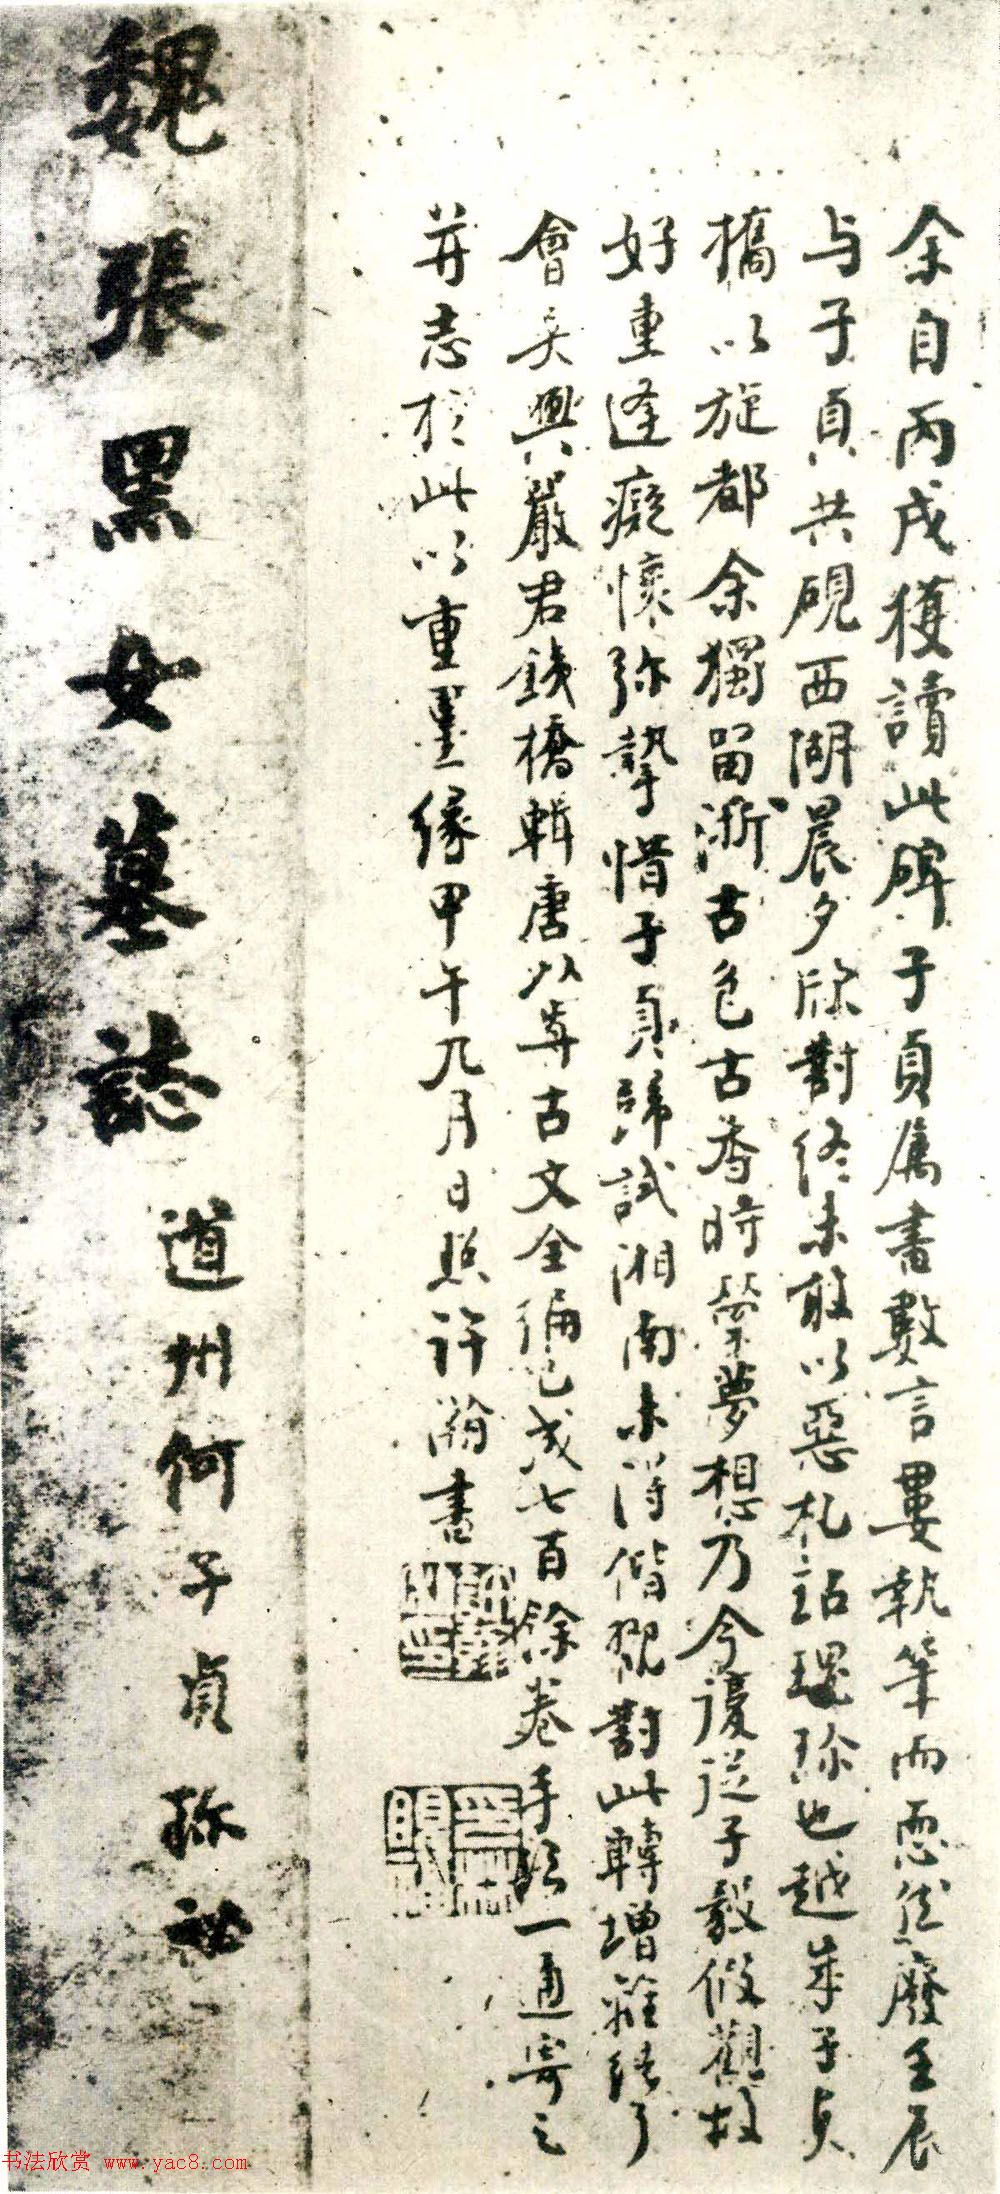 余自丙戌獲讀此碑子貞屬書數言屢執筆而恧然廢壬辰
与子貞共硯西湖晨夕際對終未敢以惡札玷瓌珍也越年子貞
攜以旋都余獨留浙古色古香時縈夢想乃今復從子毅假觀故
好重逢癡懷弥摯惜子貞歸試湘南未得偕觀對此轉增離緒了
會吳興嚴君銕橋輯唐以前古文全編已成七百餘卷手臨一通寄之
并志於此以重墨緣甲午九月日照許瀚書
許瀚之印
印林
魏張黑女墓誌
道州何子貞珎祕
书法欣赏 www.yac8.com